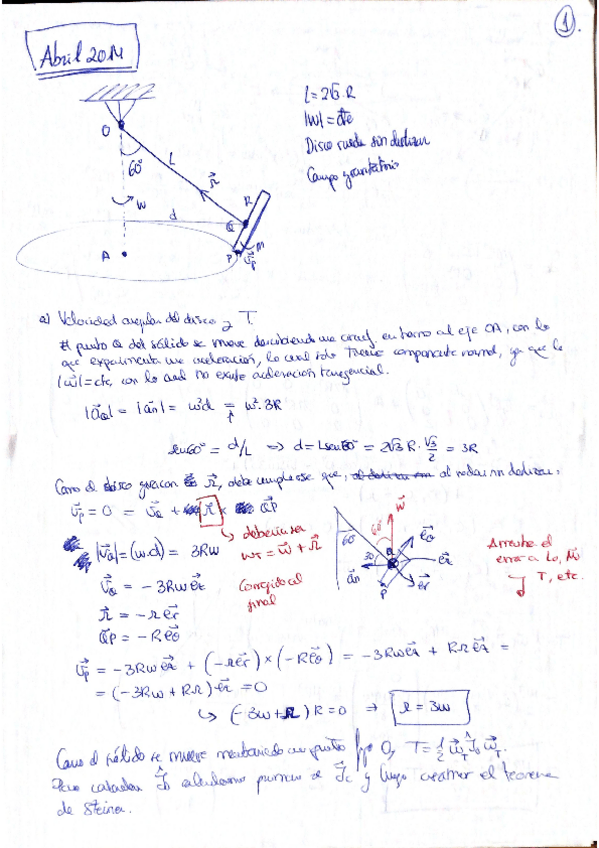 1.
Abril 2014
L = 2√3·R
|w| = cte
Disco rueda sin deslizar
Campo gravitatorio
O
60°
L
r⃗
w
d
R
Q
P
M
v⃗p
A
a) Velocidad angular del disco y T.
El punto Q del sólido se mueve describiendo una circunf. en torno al eje OA, con lo
que experimenta una aceleración, la cual solo tiene componente normal, ya que la
|w⃗| = cte, con lo cual no existe aceleración tangencial.
|a⃗Q| = |a⃗n| = w²d = w²·3R
sen60° = d/L ⇒ d = Lsen60° = 2√3 R · √3/2 = 3R
Como el disco gira con r⃗, debe cumplirse que, al rodar sin deslizar:
v⃗p = 0 = v⃗Q + r⃗ × QP
debería ser
wT = w⃗ + r⃗
Corregido al
final
|v⃗Q| = (w·d) = 3Rw
v⃗Q = -3Rw
r⃗ = -r e⃗r
QP = -R e⃗θ
60°
60°
w⃗
e⃗θ
30
a⃗n
P
e⃗r
Arrastra el
error a
y T, etc.
v⃗p = -3Rw + (-r e⃗r) × (-R e⃗θ) = -3Rw + Rr =
= (-3Rw + Rr) = 0
↳ (-3w + r) R = 0 ⇒ r = 3w
Como el sólido se mueve manteniendo un punto fijo O, T = 1/2 w⃗T Îo w⃗T.
Para calcular Îo calculamos primero el y luego el teorema
de Steiner.